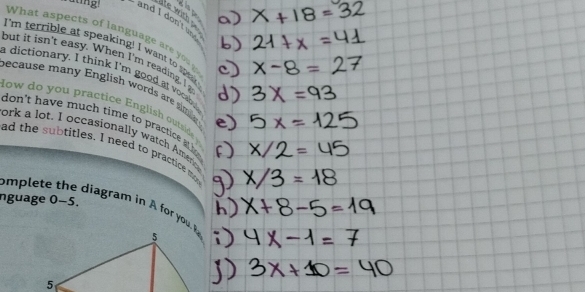 What aspects of language are you
I'm terrible at speaking! I want to
but it isn't easy. When I'm reading, I
a dictionary. I think I'm good at
because many English words are
How do you practice English outside
don't have much time to practice
ork a lot. I occasionally watch
ad the subtitles. I need to practice
omplete the diagram in A for you.
nguage 0–5.
5
5
a) x + 18 = 32
b) 21 + x = 41
c) x - 8 = 27
d) 3x = 93
e) 5x = 125
f) x/2 = 45
g) x/3 = 18
h) x + 8 - 5 = 19
i) 4x - 1 = 7
j) 3x + 10 = 40